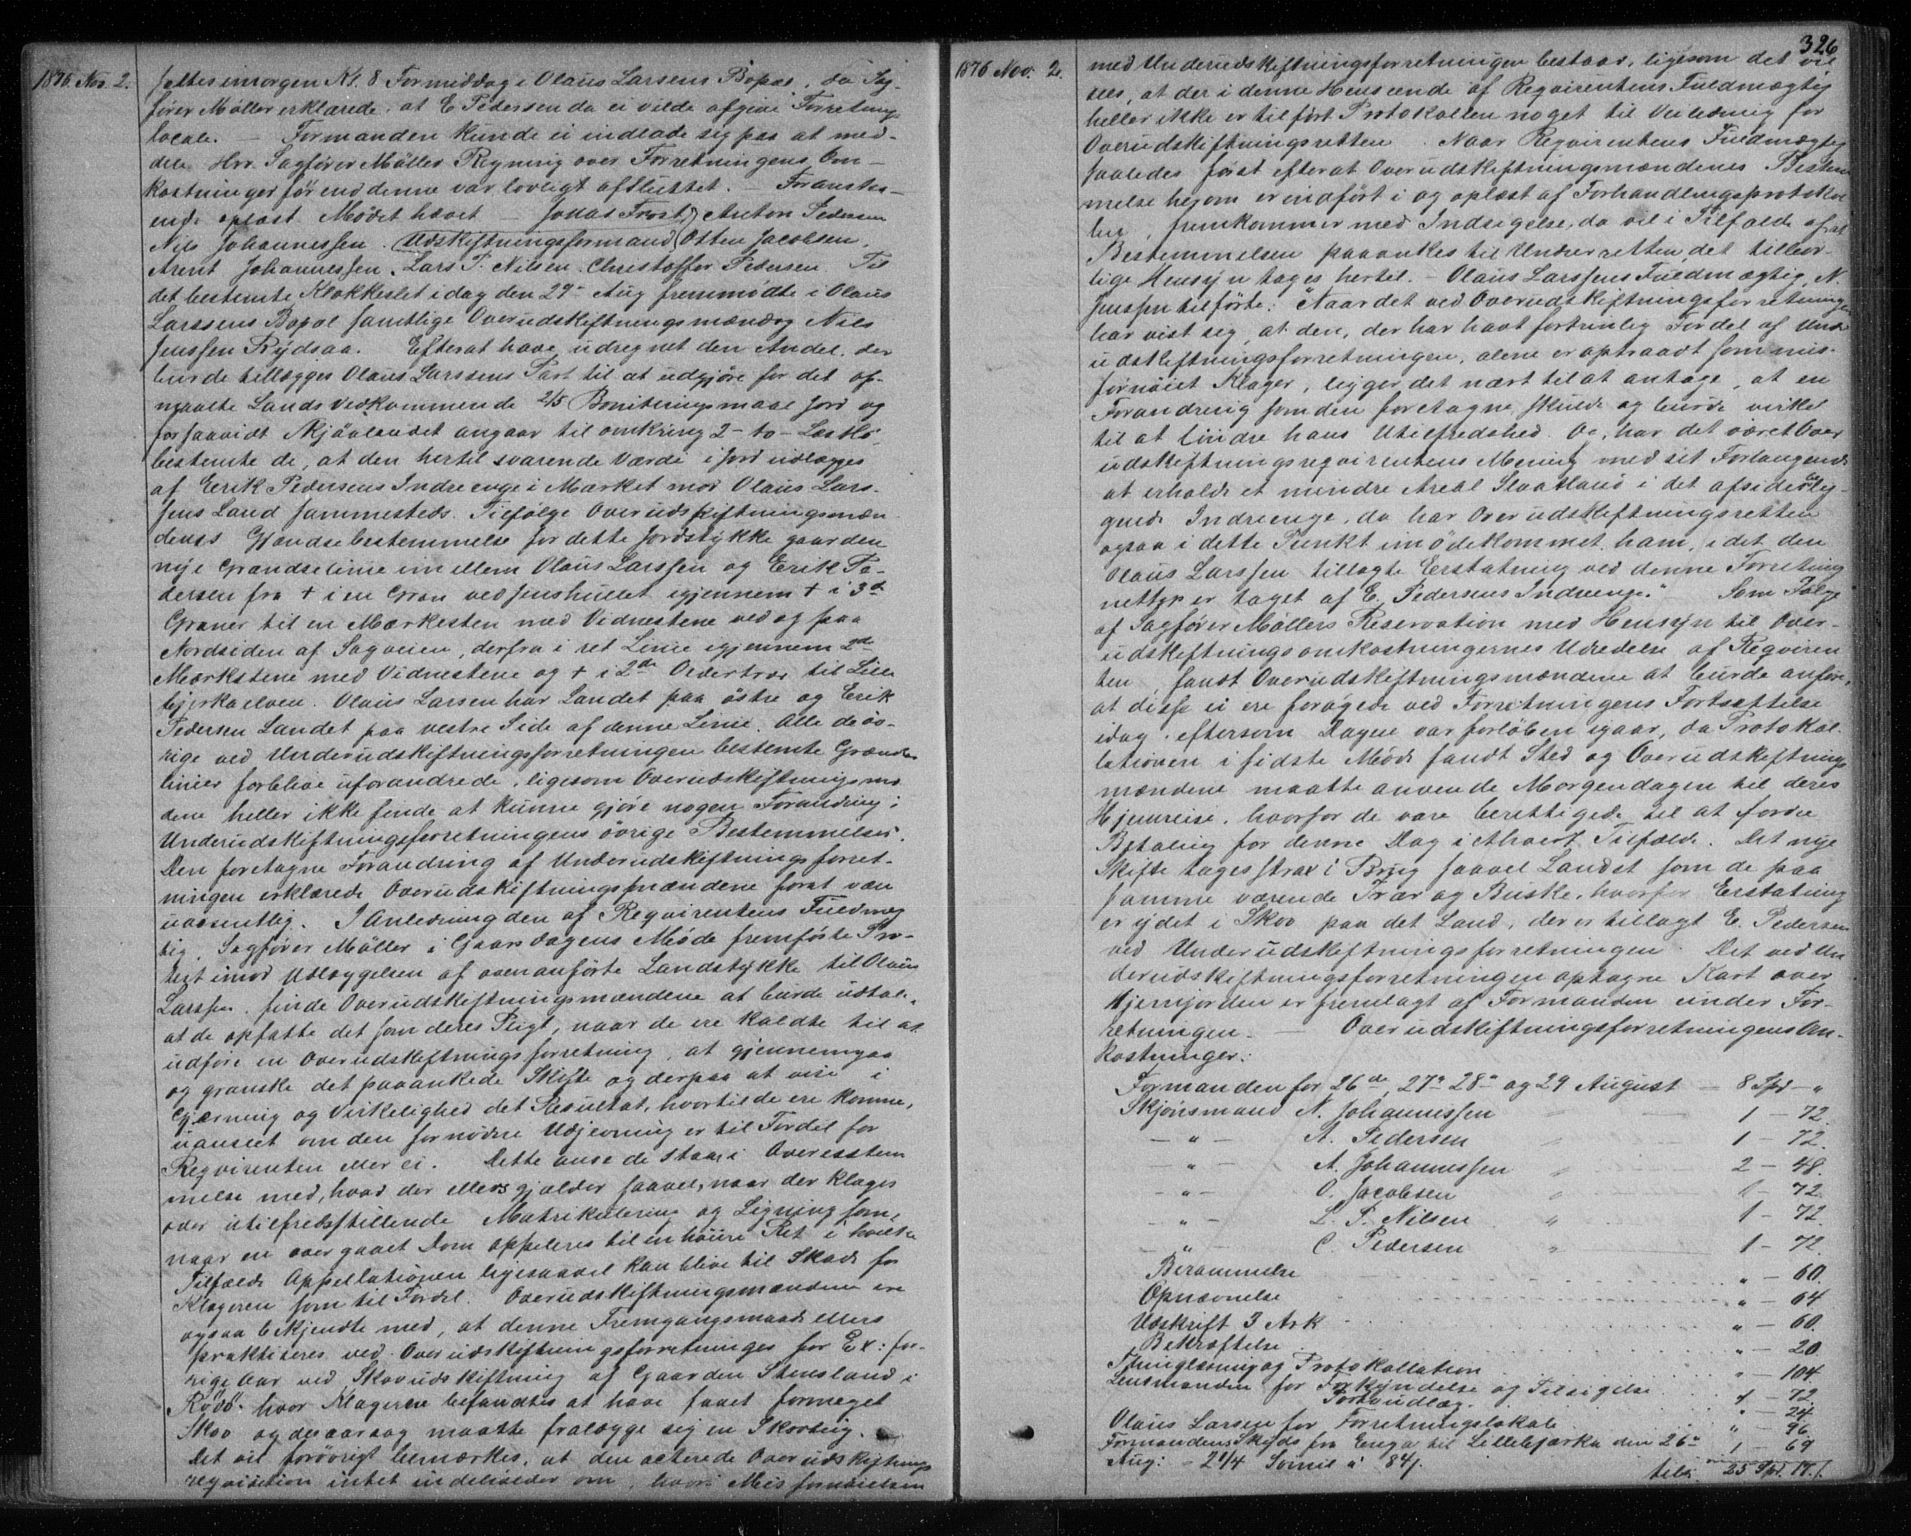 1876. Nov. 2.
sættes imorgen Kl. 8 Formiddag i Olaus Larsens Bopæl, da Sag-
fører Møller erklærede, at E. Pedersen da ei vilde afgive Forretnings
locale. — Formanden kunde ei indlade sig paa at med-
dele Hrr. Sagfører Møller Regning over Forretningens Om-
kostninger før end denne var lovligt afsluttet. — Foranstaa-
ende oplæst Mødet hævet — Jonas Frost, Anton Pedersen
Nils Johannessen. Udskiftningsformand Otten Jacobsen,
Arent Johannessen, Lars P. Nilsen. Christoffer Pedersen. Til
det bestemte Klokkeslet idag den 29de Aug fremmødte i Olaus
Larssens Bopæl samtlige Overudskiftningsmænd og Nils
Jenssen Rydsaa. Efterat have udregnet den Andel, der
burde tillægges Olaus Larssens Part til at udgjøre for det op-
maalte Lands Vedkommende 2/5 Boniteringsmaal Jord og
forsaavidt Mjaalandet angaar til omkring 2 - to - Læs Hø
bestemte de, at den hertil svarende Værdi i Jord udlægges
af Erik Pedersens Indreenge i Mærket mod Olaus Lars-
sens Land sammesteds. Tilfølge Overudskiftningsmæn
denes Grændsebestemmelse for dette Jordstykke gaar den
nye Grændselinie imellem Olaus Larssen og Erik Pe-
dersen fra + i en Gran ved Jenshullet igjennem + i 3de
Graner til en Mærkesten med Vidnestene ved og paa
Nordsiden af Sagveien, derfra i ret Linie igjennem 2de
Mærkstene med Vidnestene og + i 2de Oldertræ til Lille
bjerkaelven. Olaus Larsen har Landet paa østre og Erik
Pedersen Landet paa vestre Side af denne Linie. Alle de øv-
rige ved Underudskiftningsforretningen bestemte Grændse
linier forblive uforandrede, ligesom Overudskiftningsmæn
dene heller ikke finde at kunne gjøre nogen Forandring i
Underudskiftningsforretningens øvrige Bestemmelser.
Den foretagne Forandring af Underudskiftningsforret-
ningen erklærede Overudskiftningsmændene forat være
uvæsentlig. I Anledning den af Reqvirentens Fuldmæg
tig, Sagfører Møller i Gaarsdagens Møde fremførte Pro-
test imod Udlæggelsen af ovenanførte Landstykke til Olaus
Larssen, finde Overudskiftningsmændene at burde udtale,
at de opfatte det som deres Pligt, naar de ere kaldte til at
udføre en Overudskiftningsforretning, at gjennemgaa
og granske det paaankede Skifte og derpaa at vise i
Gjerning og Virkelighed det Resultat, hvortil de ere komne,
uanseet om den fornødne Udjevning er til Fordel for
Reqvirenten eller ei. Dette anse de staa i Overenstem
melse med, hvad der ellers gjælder saavel, naar der klages
over utilfredsstillende Matrikulering og Ligning som,
naar en overgaaet Dom appeleres til en høiere Ret i hvilke
Tilfælde Appellationen ligesaavel kan blive til Skade for
Klageren som til Fordel. Overudskiftningsmændene ere
ogsaa bekjendte med, at denne Fremgangsmaade ellers
praktiseres ved Overudskiftningsforretninger for Ex: for-
rige Aar ved Skovudskiftning af Gaarden Stensland i
Rødø hvor Klageren befandtes at have faaet formeget
Skov og desaarsag maatte fralægge sig en Skovteig.
Det vil forøvrigt bemærkes, at den acterede Overudskiftnings
reqvisition intet indeholder om hvori Misfornøielsen
1876 Nov. 2.
326
med Underudskiftningsforretningen bestaar, ligesom det vil
sees, at der i denne Henseende af Reqvirentens Fuldmægtig
heller ikke er tilført Protokollen noget til Veiledning for
Overudskiftningsretten. Naar Reqvirentens Fuldmægtig
saaledes først efterat Overudskiftningsmændenes Bestem
melse herom er indført i og oplæst af Forhandlingsprotokol
len, fremkommer med Indsigelse, da vil i Tilfælde af at
Bestemmelsen paaankes til Underretten, det tilbør-
lige Hensyn tages hertil. — Olaus Larssens Fuldmægtig, N.
Jenssen tilførte: "Naar det ved Overudskiftningsforretningen
har vist sig, at den, der har havt fortrinlig Fordel af Under
udskiftningsforretningen, alene er optraadt som mis-
fornøiet Klager, ligger det nært til at antage, at en
Forandring som den foretagne skulde og burde virke
til at lindre hans Utilfredshed. Og, har det været Over
udskiftningsreqvirentens Mening med sit Forlangende
at erholde et mindre Areal Slaatland i det afsideslig-
gende Indreenge, da har Overudskiftningsretten
ogsaa i dette Punkt imødekommet ham, idet den
Olaus Larssen tillagte Erstatning ved denne Forretning
netop er taget af E. Pedersens Indreenge." Som Følge
af Sagfører Møllers Reservation med Hensyn til Over-
udskiftningsomkostningernes Udredelse af Reqviren
ten, fandt Overudskiftningsmændene at burde anføre,
at disse ei ere forøgede ved Forretningens Fortsættelse
idag, eftersom Dagen var forløben igaar, da Protokol-
lationen i sidste Møde fandt Sted og Overudskiftnings
mændene maatte anvende Morgendagen til deres
Hjemreise, hvorfor de vare berettigede til at fordre
Betaling for denne Dag i ethvert Tilfælde. Det nye
Skifte tages strax i Brug saavel Landet som de paa
samme værende Trær og Buske, hvorfor Erstatning
er ydet i Skov paa det Land, der er tillagt E. Pedersen
ved Underudskiftningsforretningen. Det ved Un
derudskiftningsforretningen optagne Kart over
Hjemjorden er fremlagt af Formanden under For-
retningen. — Overudskiftningsforretningens Om-
kostninger:
Formanden for 26de, 27de 28de og 29 August — 8 Spd - "
Skjønsmand N. Johannessen 1 - 72.
— " — A. Pedersen 1 - 72.
— " — A. Johannessen 2 - 48.
— " — O. Jacobsen 1 - 72.
— " — L. P. Nilsen 1 - 72.
— " — C. Pedersen 1 - 72.
Berammelse " - 60.
Opnævnelse " - 64
Udskrift 3 Ark " - 60.
Bekræftelse " - 20.
Thinglæsning og Protokollation " - 104
Lensmanden for Forkyndelse og Tilsigelse 4 - 72
Portoudlæg " - 24.
Olaus Larsen for Forretningslokale " - 96.
Formandens Skyds fra Enga til Lillebjærka den 26de
Aug: - 2 1/4 Sømil à 84 ſ. 1 - 69
tils. 25 Spd. 17 ſ.